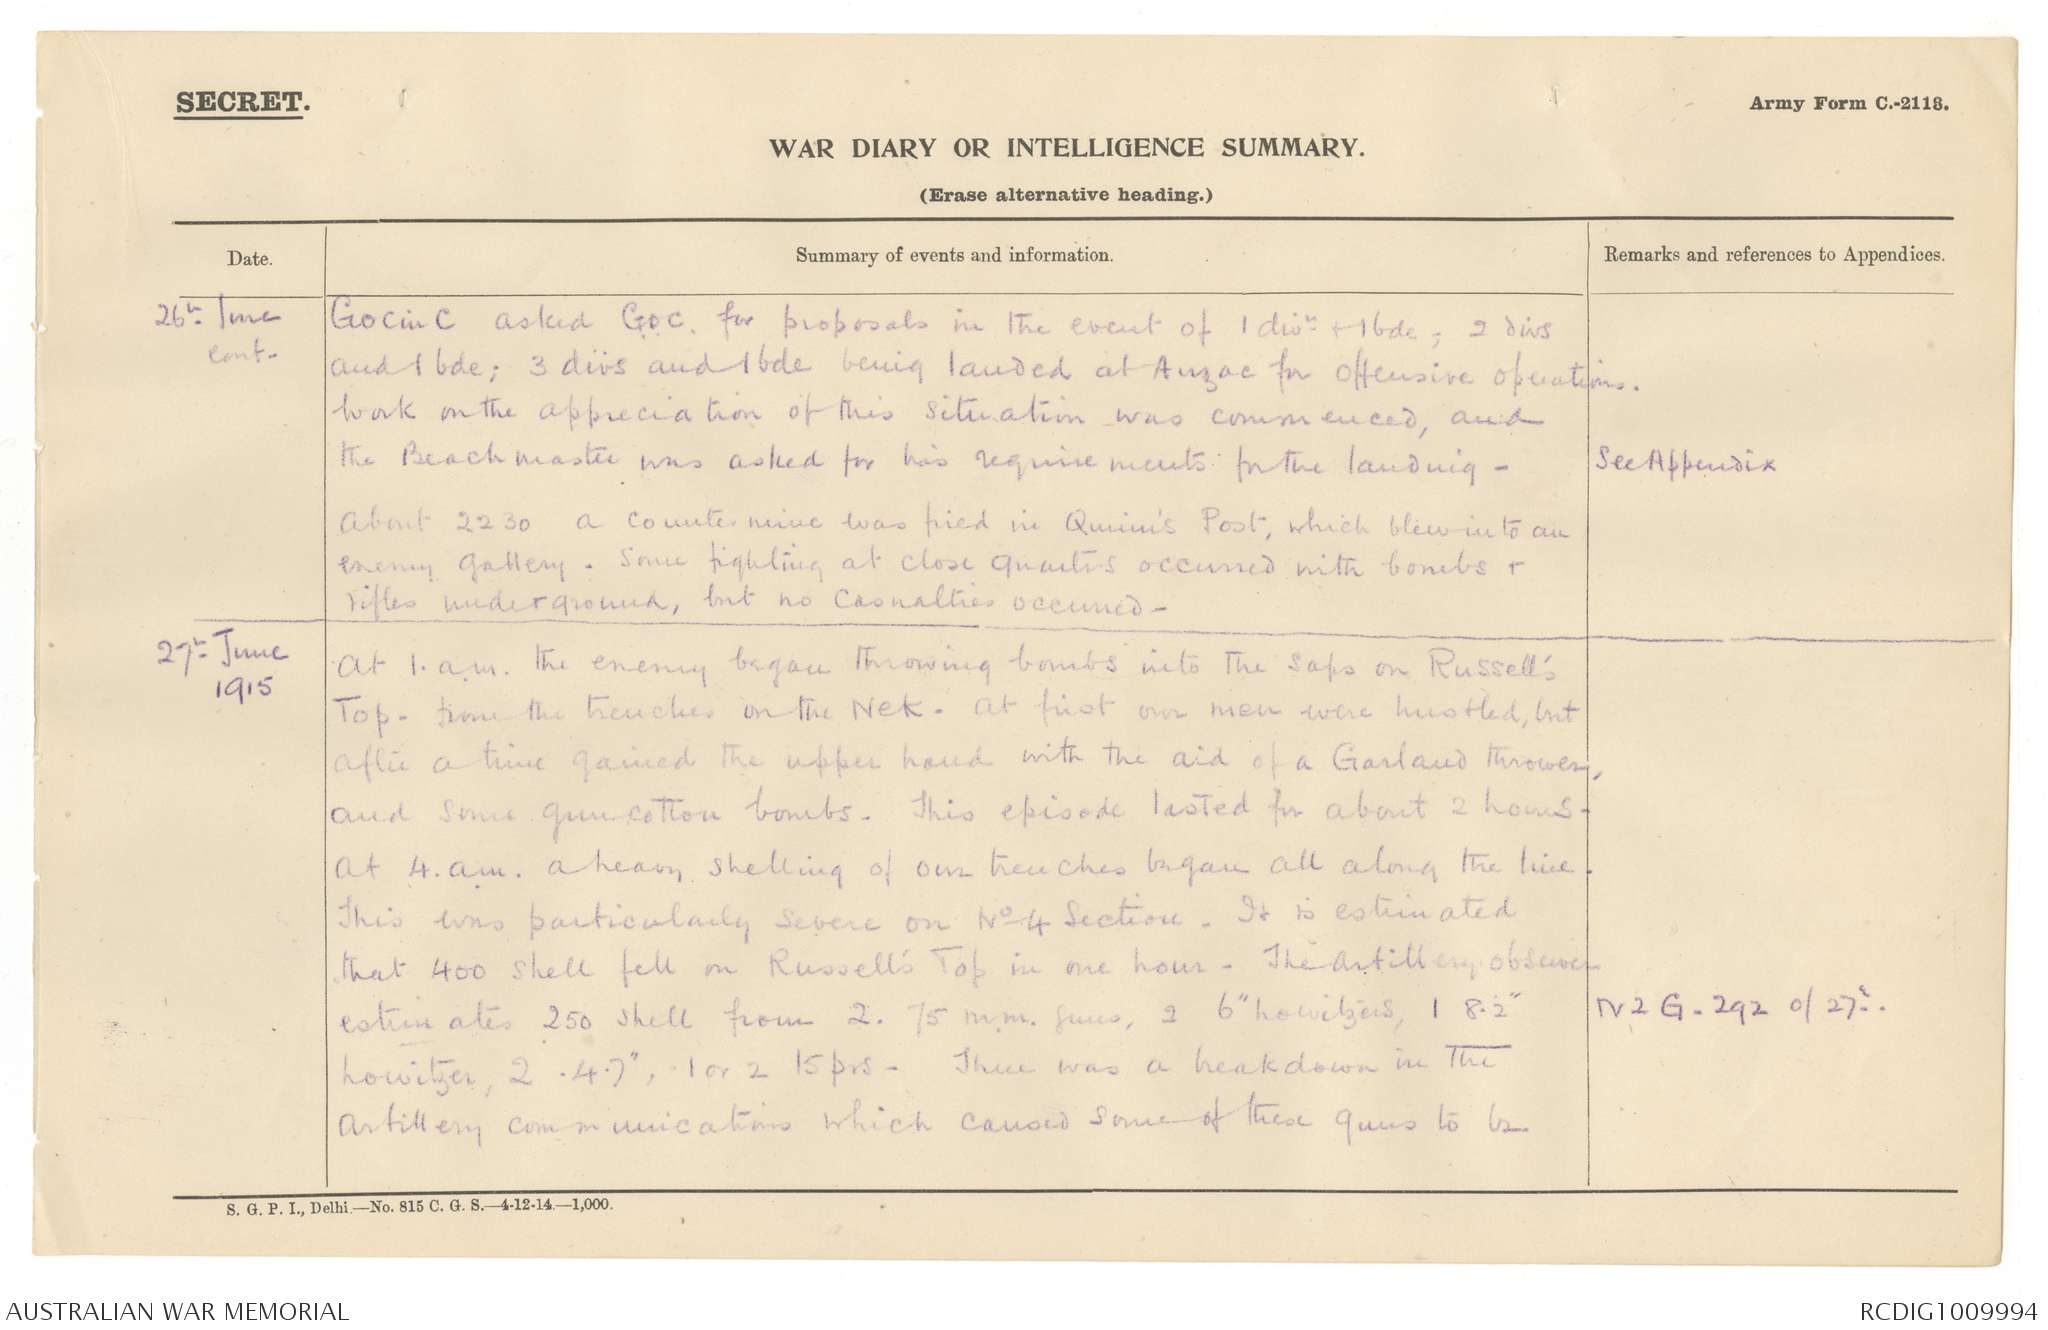 SECRET.
Army Form C.-2118.
WAR DIARY OR INTELLIGENCE SUMMARY.
(Erase alternative heading.)
Date.
Summary of events and information.
Remarks and references to Appendices.
26th June
cont.
GOCinC asked GOC. for proposals in the event of 1 divn + 1 bde; 2 divs
and 1 bde; 3 divs and 1 bde being landed at Anzac for offensive operations.
Work on the appreciation of this situation was commenced, and
the Beachmaster was asked for his requirements for the landing -
See Appendix
About 2230 a countermine was fired in Quinn's Post, which blew into an
enemy gallery. Some fighting at close quarters occurred with bombs +
rifles underground, but no casualties occurred -
27th June
1915
At 1.a.m. the enemy began throwing bombs into the saps on Russell's
Top - from the trenches on the Nek. At first our men were hustled, but
after a time gained the upper hand with the aid of a Garland thrower,
and some guncotton bombs. This episode lasted for about 2 hours -
At 4.a.m. a heavy shelling of our trenches began all along the line.
This was particularly severe on No 4 Section. It is estimated
that 400 shell fell on Russell's Top in one hour - The Artillery observer
estimates 250 shell from 2. 75 m.m. guns, 2 6" howitzers, 1 8.2"
N Z G. 292 of 27th.
howitzer, 2 .4.7", 1 or 2 15 prs. There was a breakdown in the
Artillery communications which caused some of these guns to be
S. G. P. I., Delhi.—No. 815 C. G. S.—4-12-14.—1,000.
AUSTRALIAN WAR MEMORIAL
RCDIG1009994